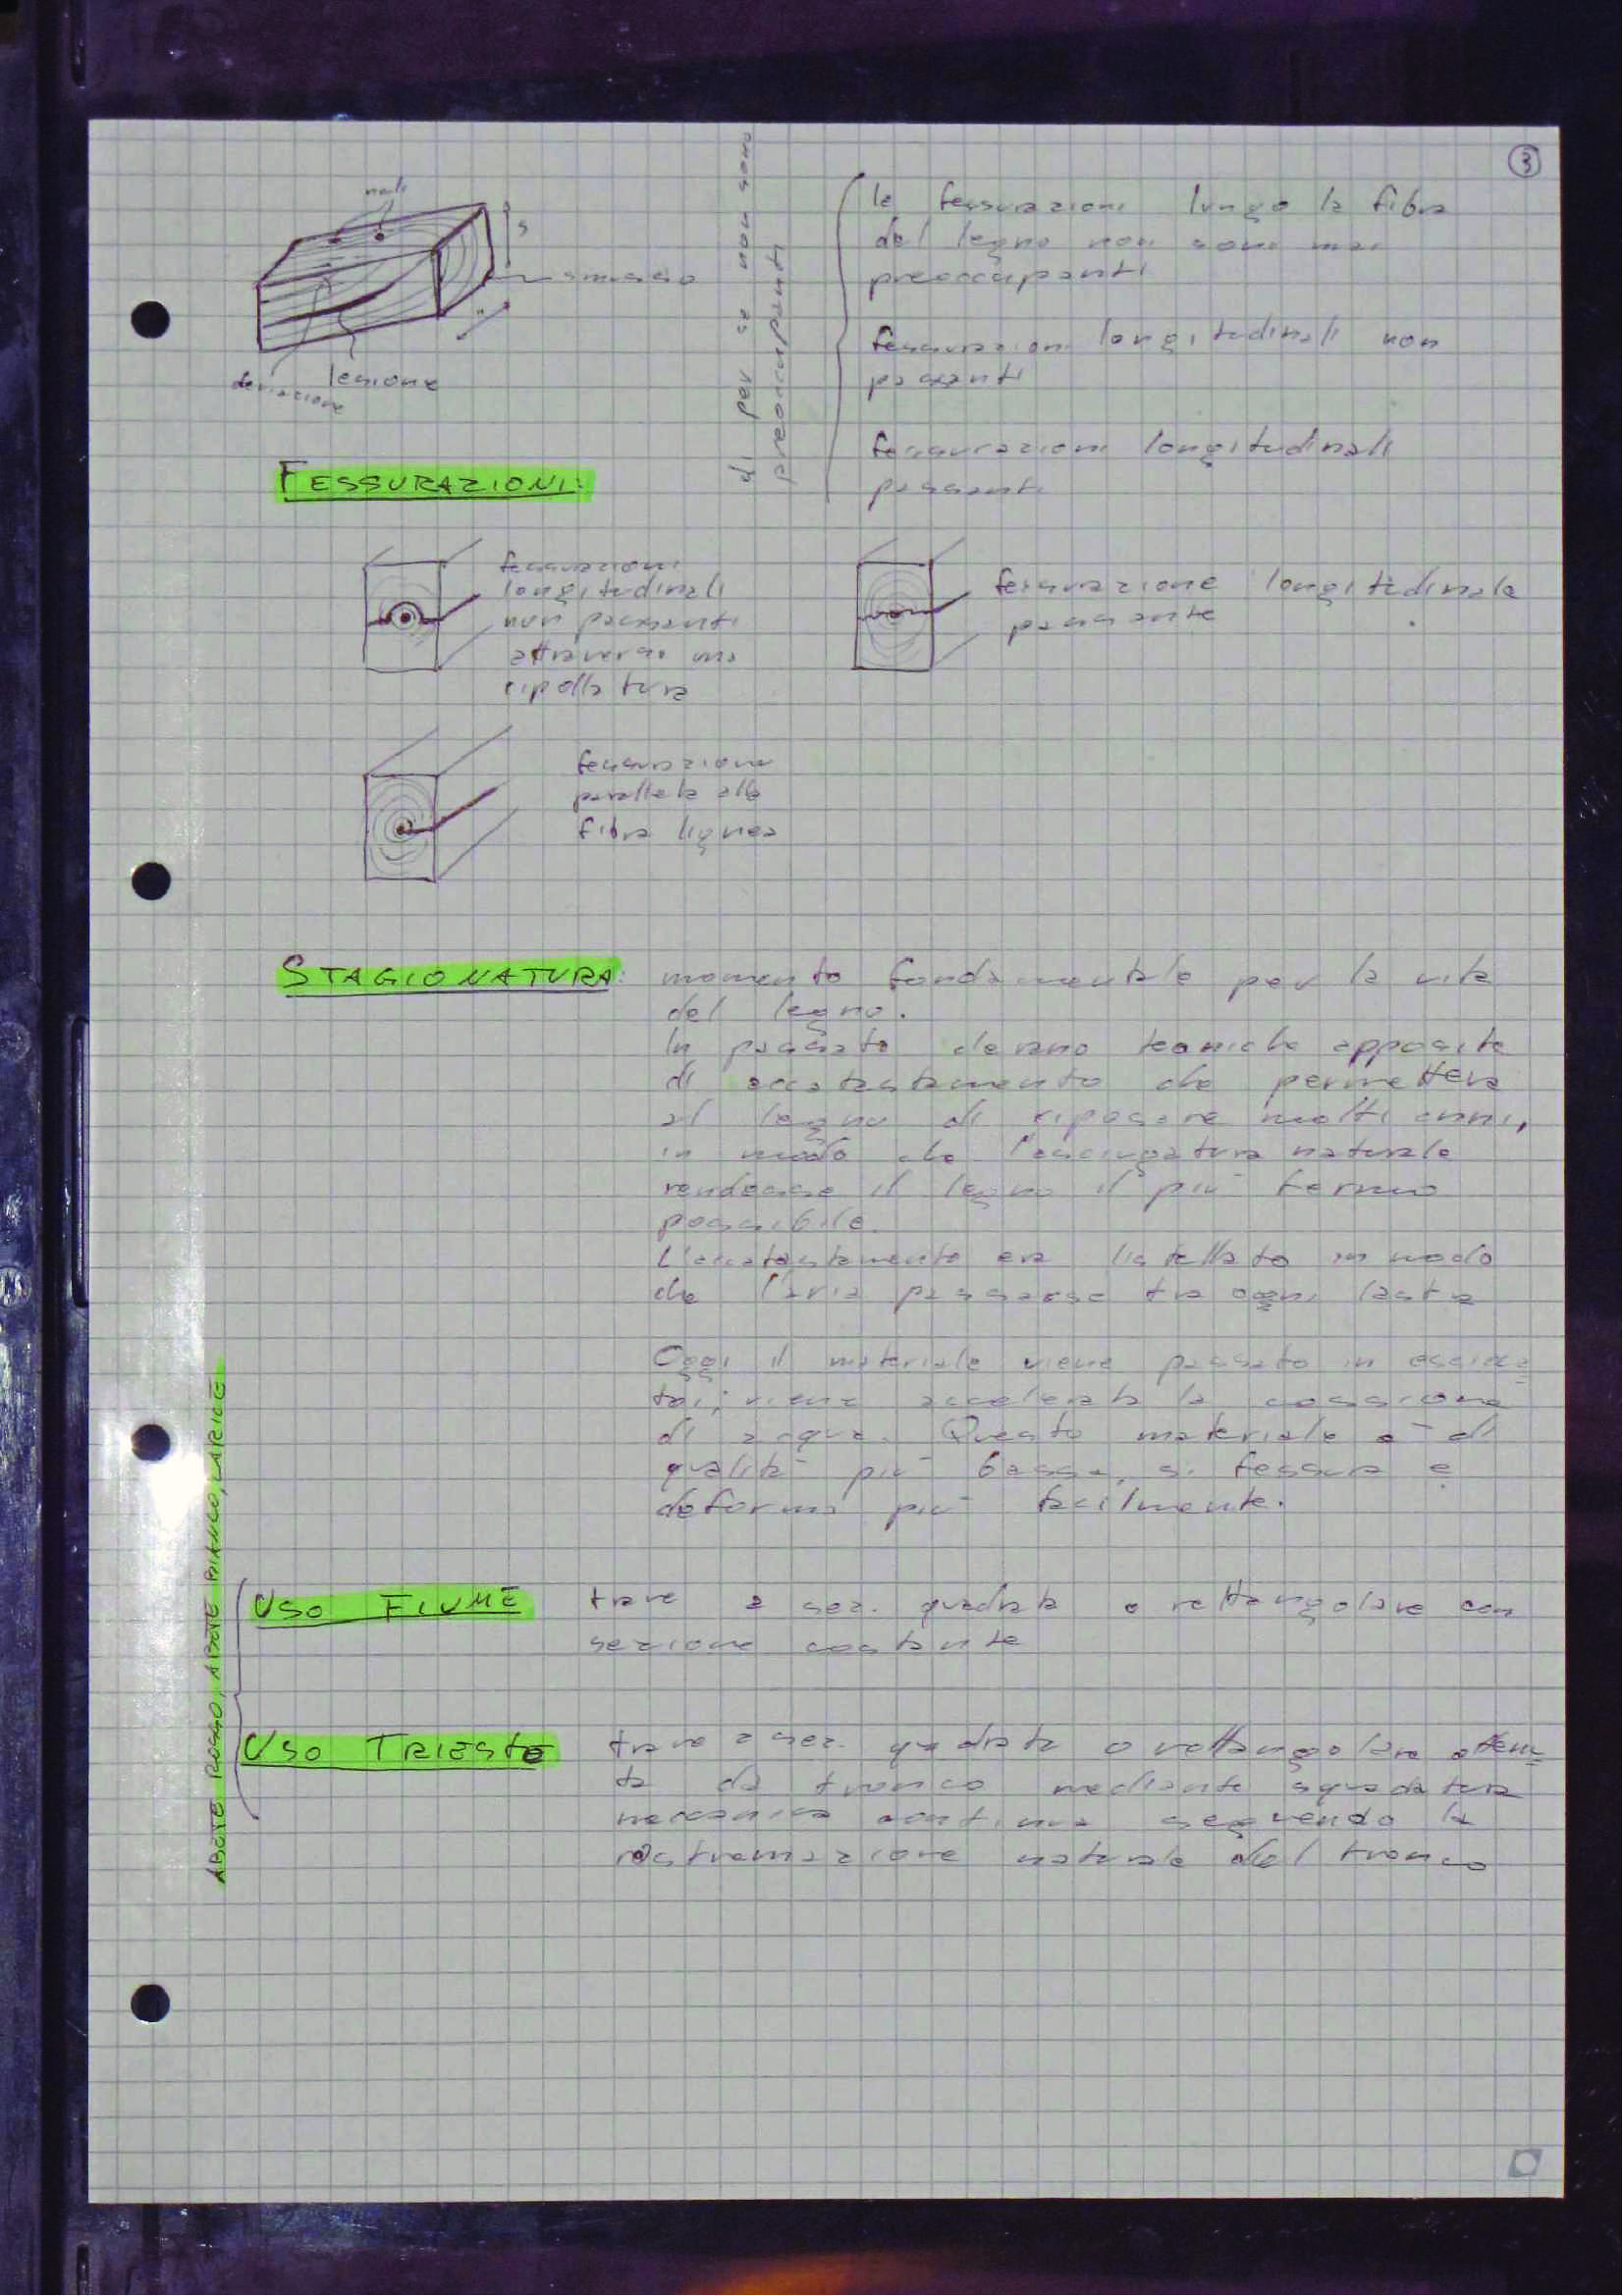 3
nodi
s
smusso
deviazione
lesione
di per se non sono
preoccupanti
le fessurazioni lungo la fibra
del legno non sono mai
preoccupanti
fessurazioni longitudinali non
passanti
fessurazioni longitudinali
passanti
FESSURAZIONI:
fessurazioni
longitudinali
non passanti
attraverso una
cipollatura
fessurazione longitudinale
passante
fessurazione
parallela alla
fibra lignea
STAGIONATURA: momento fondamentale per la vita
del legno.
In passato c'erano tecniche apposite
di accatastamento che permetteva
al legno di riposare molti anni,
in modo che l'asciugatura naturale
rendesse il legno il più fermo
possibile.
L'accatastamento era listellato in modo
che l'aria passasse tra ogni lastra
Oggi il materiale viene passato in essica=
toi; viene accelerata la cessione
di acqua. Questo materiale è di
qualità più bassa, si fessura e
deforma più facilmente.
ABETE ROSSO, ABETE BIANCO, LARICE
USO FIUME trave a sez. quadrata o rettangolare con
sezione costante
USO TRIESTE trave a sez. quadrata o rettangolare otten=
ta da tronco mediante squadratura
meccanica continua seguendo la
rastremazione naturale del tronco